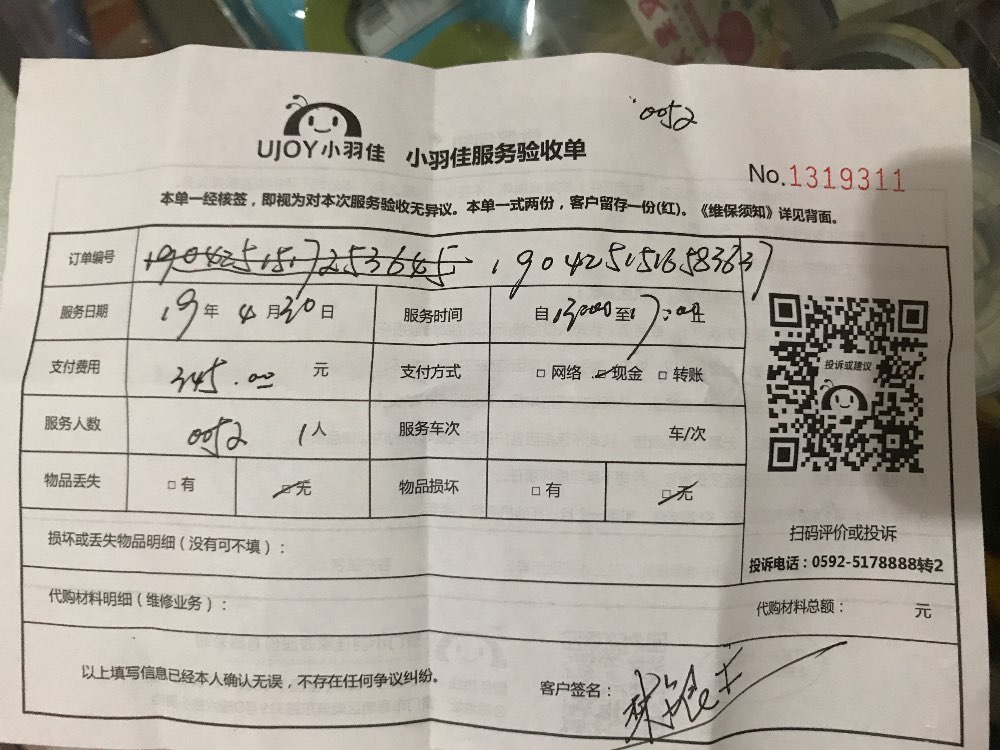 0052
UJOY小羽佳 小羽佳服务验收单
No.1319311
本单一经核签，即视为对本次服务验收无异议。本单一式两份，客户留存一份(红)。《维保须知》详见背面。
订单编号 1904251517253645 190425151658363 7
服务日期 19年 4月30日 服务时间 自13:00至17:00止
支付费用 345.00 元 支付方式 □网络 □现金 □转账
投诉或建议
服务人数 0052 1人 服务车次 车/次
物品丢失 □有 □无 物品损坏 □有 □无
扫码评价或投诉
损坏或丢失物品明细（没有可不填）：
投诉电话：0592-5178888转2
代购材料明细（维修业务）： 代购材料总额： 元
以上填写信息已经本人确认无误，不存在任何争议纠纷。 客户签名：